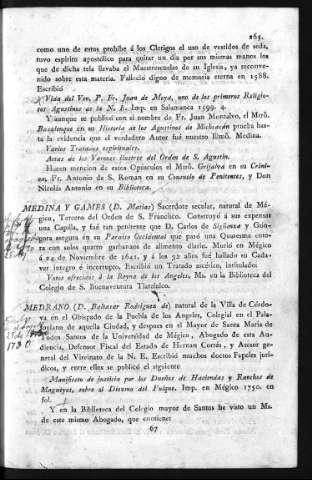 265.
como uno de estos prohibe á los Clerigos el uso de vestidos de seda,
tuvo espiritu apostólico para quitar un dia por sus mismas manos los
que de dicha tela llevaba el Maestrescuelas de su Iglesia, ya reconve-
nido sobre esta materia. Falleció digno de memoria eterna en 1588.
Escribió
Vida del Ven. P. Fr. Juan de Moya, uno de los primeros Religio-
sos Agustinos de la N. E. Imp. en Salamanca 1599. 4.
Y aunque se publicó con el nombre de Fr. Juan Montalvo, el Illmô.
Basalenque en su Historia de los Agustinos de Michoacán prueba has-
ta la evidencia que el verdadero Autor fué nuestro Illmô. Medina.
Varios Tratados espirituales.
Actas de los Varones ilustres del Orden de S. Agustin.
Hacen mencion de estos Opúsculos el Mtrô. Grijalva en su Cróni-
ca, Fr. Antonio de S. Roman en su Consuelo de Penitentes, y Don
Nicolás Antonio en su Biblioteca.
MEDINA Y GAMES (D. Matias) Sacerdote secular, natural de Mé-
gico, Tercero del Orden de S. Francisco. Construyó á sus expensas
una Capilla, y fué tan penitente que D. Carlos de Sigüenza y Gón-
gora asegura en su Paraiso Occidental que pasó una Quaresma ente-
ra con solos quatro garbanzos de alimento diario. Murió en Mégico
á 24 de Noviembre de 1641. y á los 32 años fué hallado su Cada-
ver integro é incorrupto. Escribió un Tratado ascético, intitulado:
Voces ofrecidas á la Reyna de los Angeles. Ms. en la Biblioteca
del Colegio de S. Buenaventura Tlatelulco.
MEDRANO (D. Baltasar Rodriguez de) natural de la Villa de Córdo-
va en el Obispado de la Puebla de los Angeles, Colegial en el Pala-
foxiano de aquella Ciudad, y despues en el Mayor de Santa Maria de
Todos Santos de la Universidad de Mégico, Abogado de esta Au-
diencia, Defensor Fiscal del Estado de Hernan Cortés, y Asesor gene-
ral del Vireinato de la N. E. Escribió muchos doctos Papeles juridi-
cos, y entre ellos se publicó el siguiente
Manifiesto de justicia por los Dueños de Haciendas y Ranchos de
Magueyes, sobre el Diezmo del Pulque. Imp. en Mégico 1750. en
fol.
Y en la Biblioteca del Colegio mayor de Santos he visto un Ms.
de este mismo Abogado, que contiene:
67